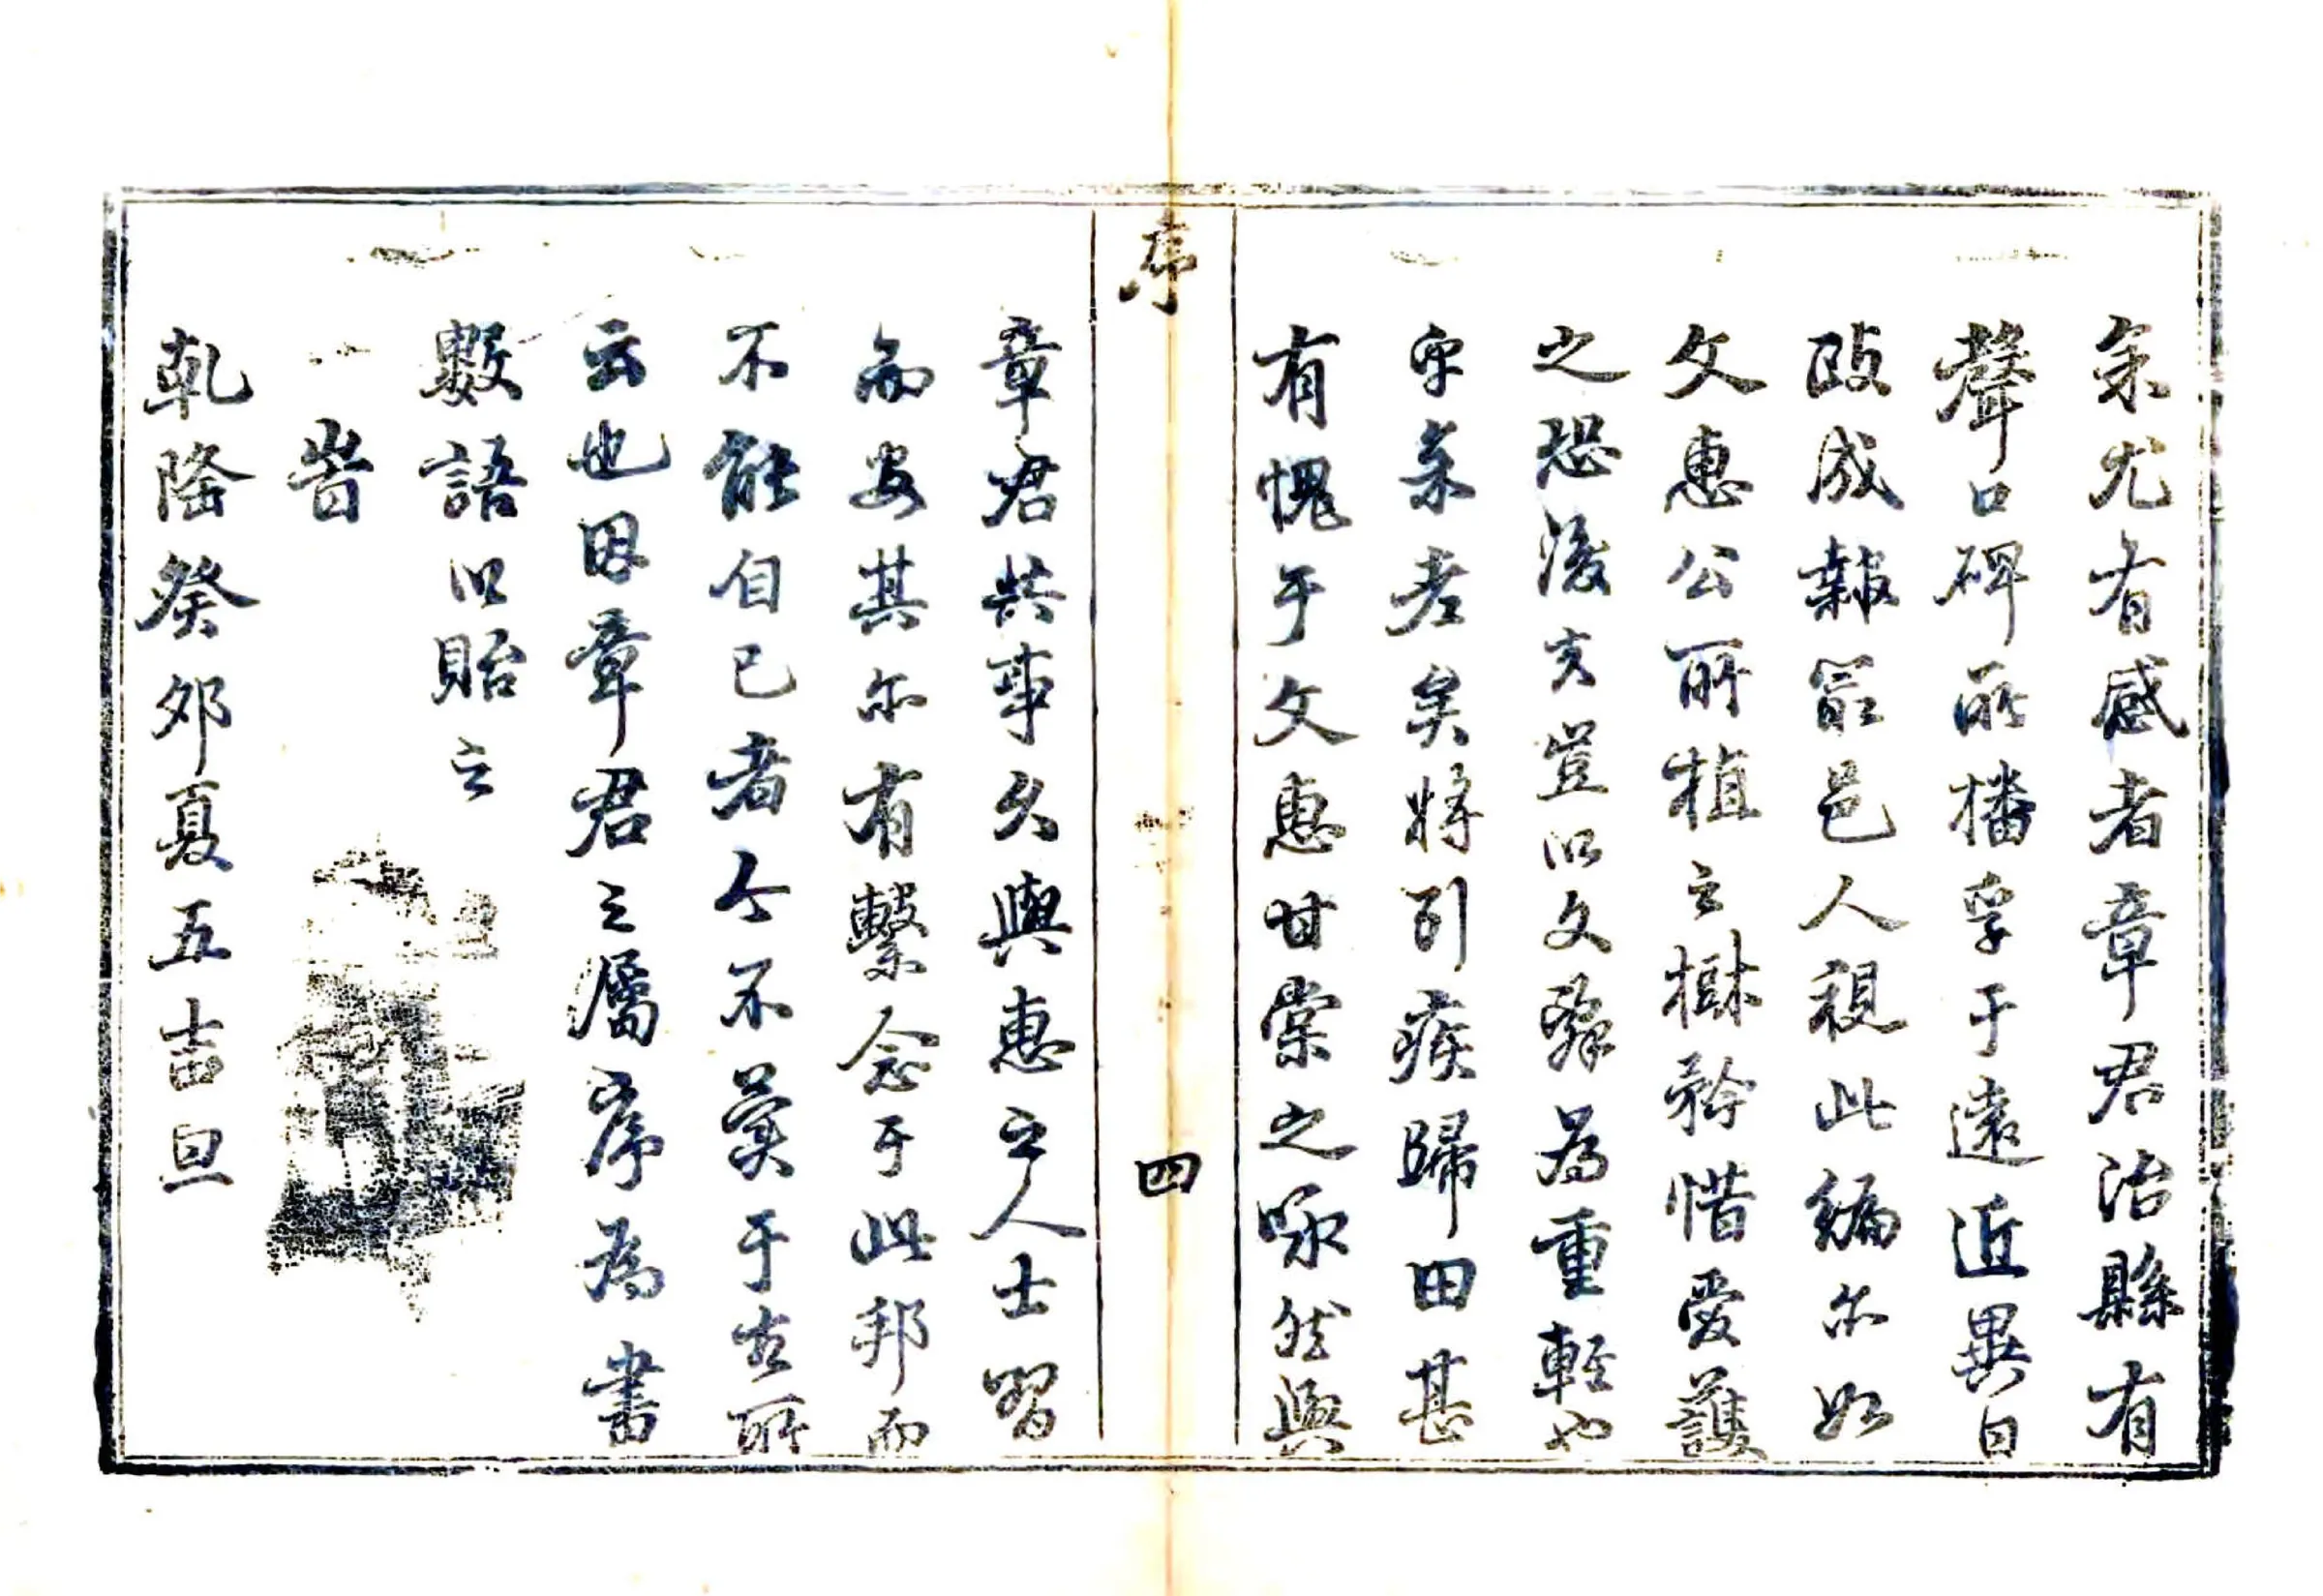 余尤有感者章君治縣有
聲口碑所播孚于遠近異日
政成報最邑人視此編尔如
文惠公所植之樹矜惜愛護
之恐後矣豈以文辭為重輕也
乎余老矣將引疾歸田甚
有愧于文惠甘棠之咏然與
序
四
章君共事久與惠之人士習
而安其尔有繫念于此邦而
不能自已者今不異于古所
云也因章君之屬序為書
數語以貽之
峕
乾隆癸卯夏五吉旦